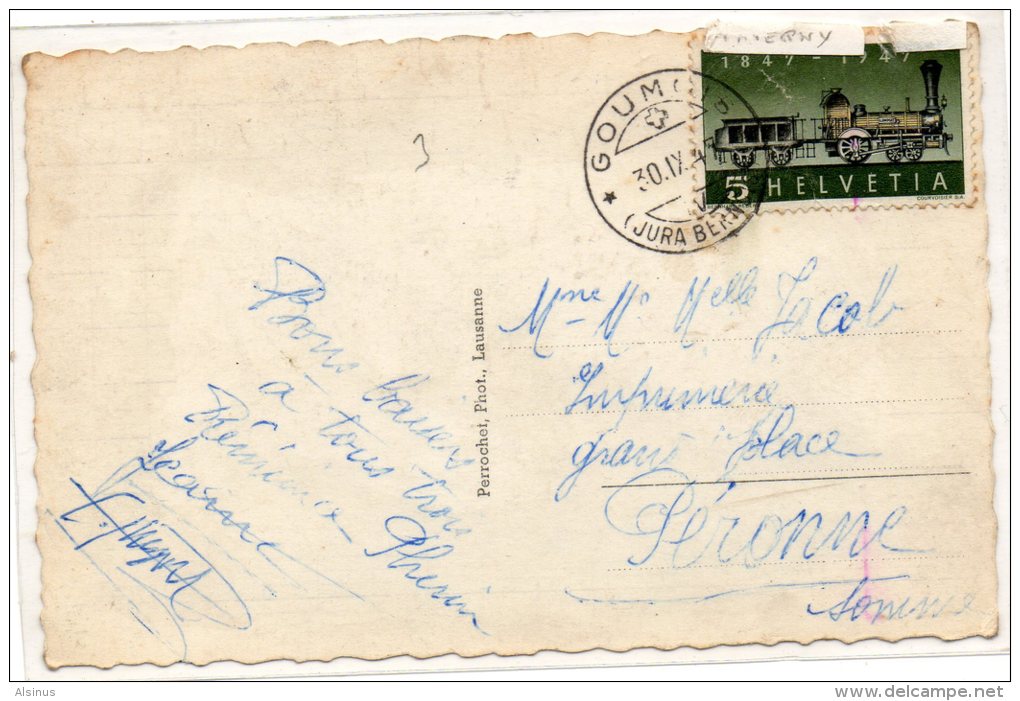 3
1847 - 1947
5
HELVETIA
COURVOISIER S.A.
GOUMOIS
30.IX.47
(JURA BERN
Bons baisers
à tous trois
Jeanne
Perrochet, Phot., Lausanne
Mme Mr Melle Jacob
Imprimerie
grand place
Péronne
Somme
Alsinus
www.delcampe.net